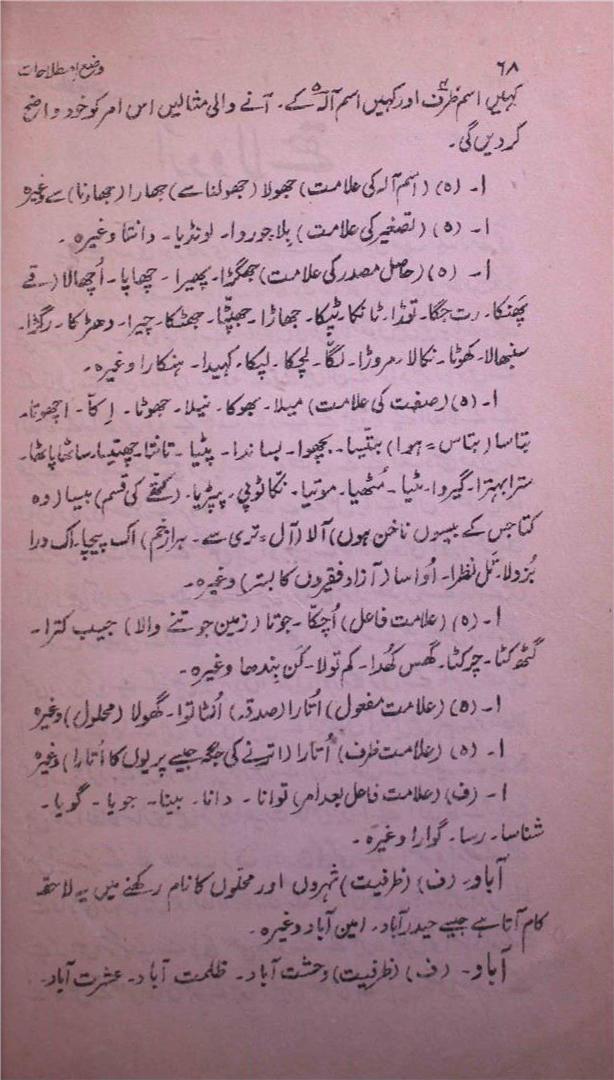 ۶۸ وضع اصطلاحات
کہیں اسم ظرف اور کہیں اسم آلہ کے۔ آنے والی مثالیں اس امر کو خود واضح
کر دیں گی۔
ا۔ (ہ) (اسم آلہ کی علامت) جھولا (جھولنا سے) جھارا (جھارنا) سے وغیرہ
ا۔ (ہ) (تصغیر کی علامت) بلا جوروا۔ لونڈیا۔ دانتا وغیرہ۔
ا۔ (ہ) (حاصل مصدر کی علامت) جھگڑا۔ پھیرا۔ چھاپا۔ اُچھالا (۔ قے
پھنکا۔ رت جگا۔ توڑا۔ ٹانکا۔ ٹپکا۔ جھاڑا۔ جھپٹا۔ جھٹکا۔ چیرا۔ دھڑکا۔ رگڑا۔
سنبھالا۔ کھوٹا۔ نکالا۔ مروڑا۔ لگّا۔ لچکا۔ لپکا۔ کہیدا۔ ہنکارا وغیرہ۔
ا۔ (ہ) (صفت کی علامت) میلا۔ بھوکا۔ نیلا۔ جھوٹا۔ اِکّا۔ اچھوتا۔
بتاسا (بتاس = ہوا) بچھوا۔ بساندا۔ پٹیا۔ تانتا۔ ساٹھا پاٹھا۔
سترا بہترا۔ گیروا۔ مٹیا۔ مُٹھیا۔ موتیا۔ پیڑیا۔ (کتھے کی قسم) بیسا (وہ
کتا جس کے بیسوں ناخن ہوں) آلا (آل = تری سے۔ ہرا زخم) اک پیچا۔ اک درا
بُزدلا۔ اُداسا (آزاد فقیروں کا بستر) وغیرہ۔
ا۔ (ہ) (علامت فاعل) اُچکّا۔ جوتا (زمین جوتنے والا) جیب کترا۔
گٹھ کٹا۔ چرکٹا۔ گھس کھُدا۔ کم تولا۔ کَن بِندھا وغیرہ۔
ا۔ (ہ) (علامت مفعول) اتارا (صدقہ) اُلٹا توا۔ گھولا (محلول) وغیرہ
ا۔ (ہ) (علامت ظرف) اُتارا (اترنے کی جگہ جیسے پریوں کا اُتارا) وغیرہ
ا۔ (ف) (علامت فاعل بعد امر) توانا۔ دانا۔ بینا۔ جویا۔ گویا۔
شناسا۔ رسا۔ گوارا وغیرہ۔
آباد۔ (ف) (ظرفیت) شہروں اور محلوں کا نام رکھنے میں یہ لاحقہ
کام آتا ہے جیسے حیدرآباد۔ امین آباد وغیرہ۔
آباد۔ (ف) (ظرفیت) وحشت آباد۔ ظلمت آباد۔ عشرت آباد۔